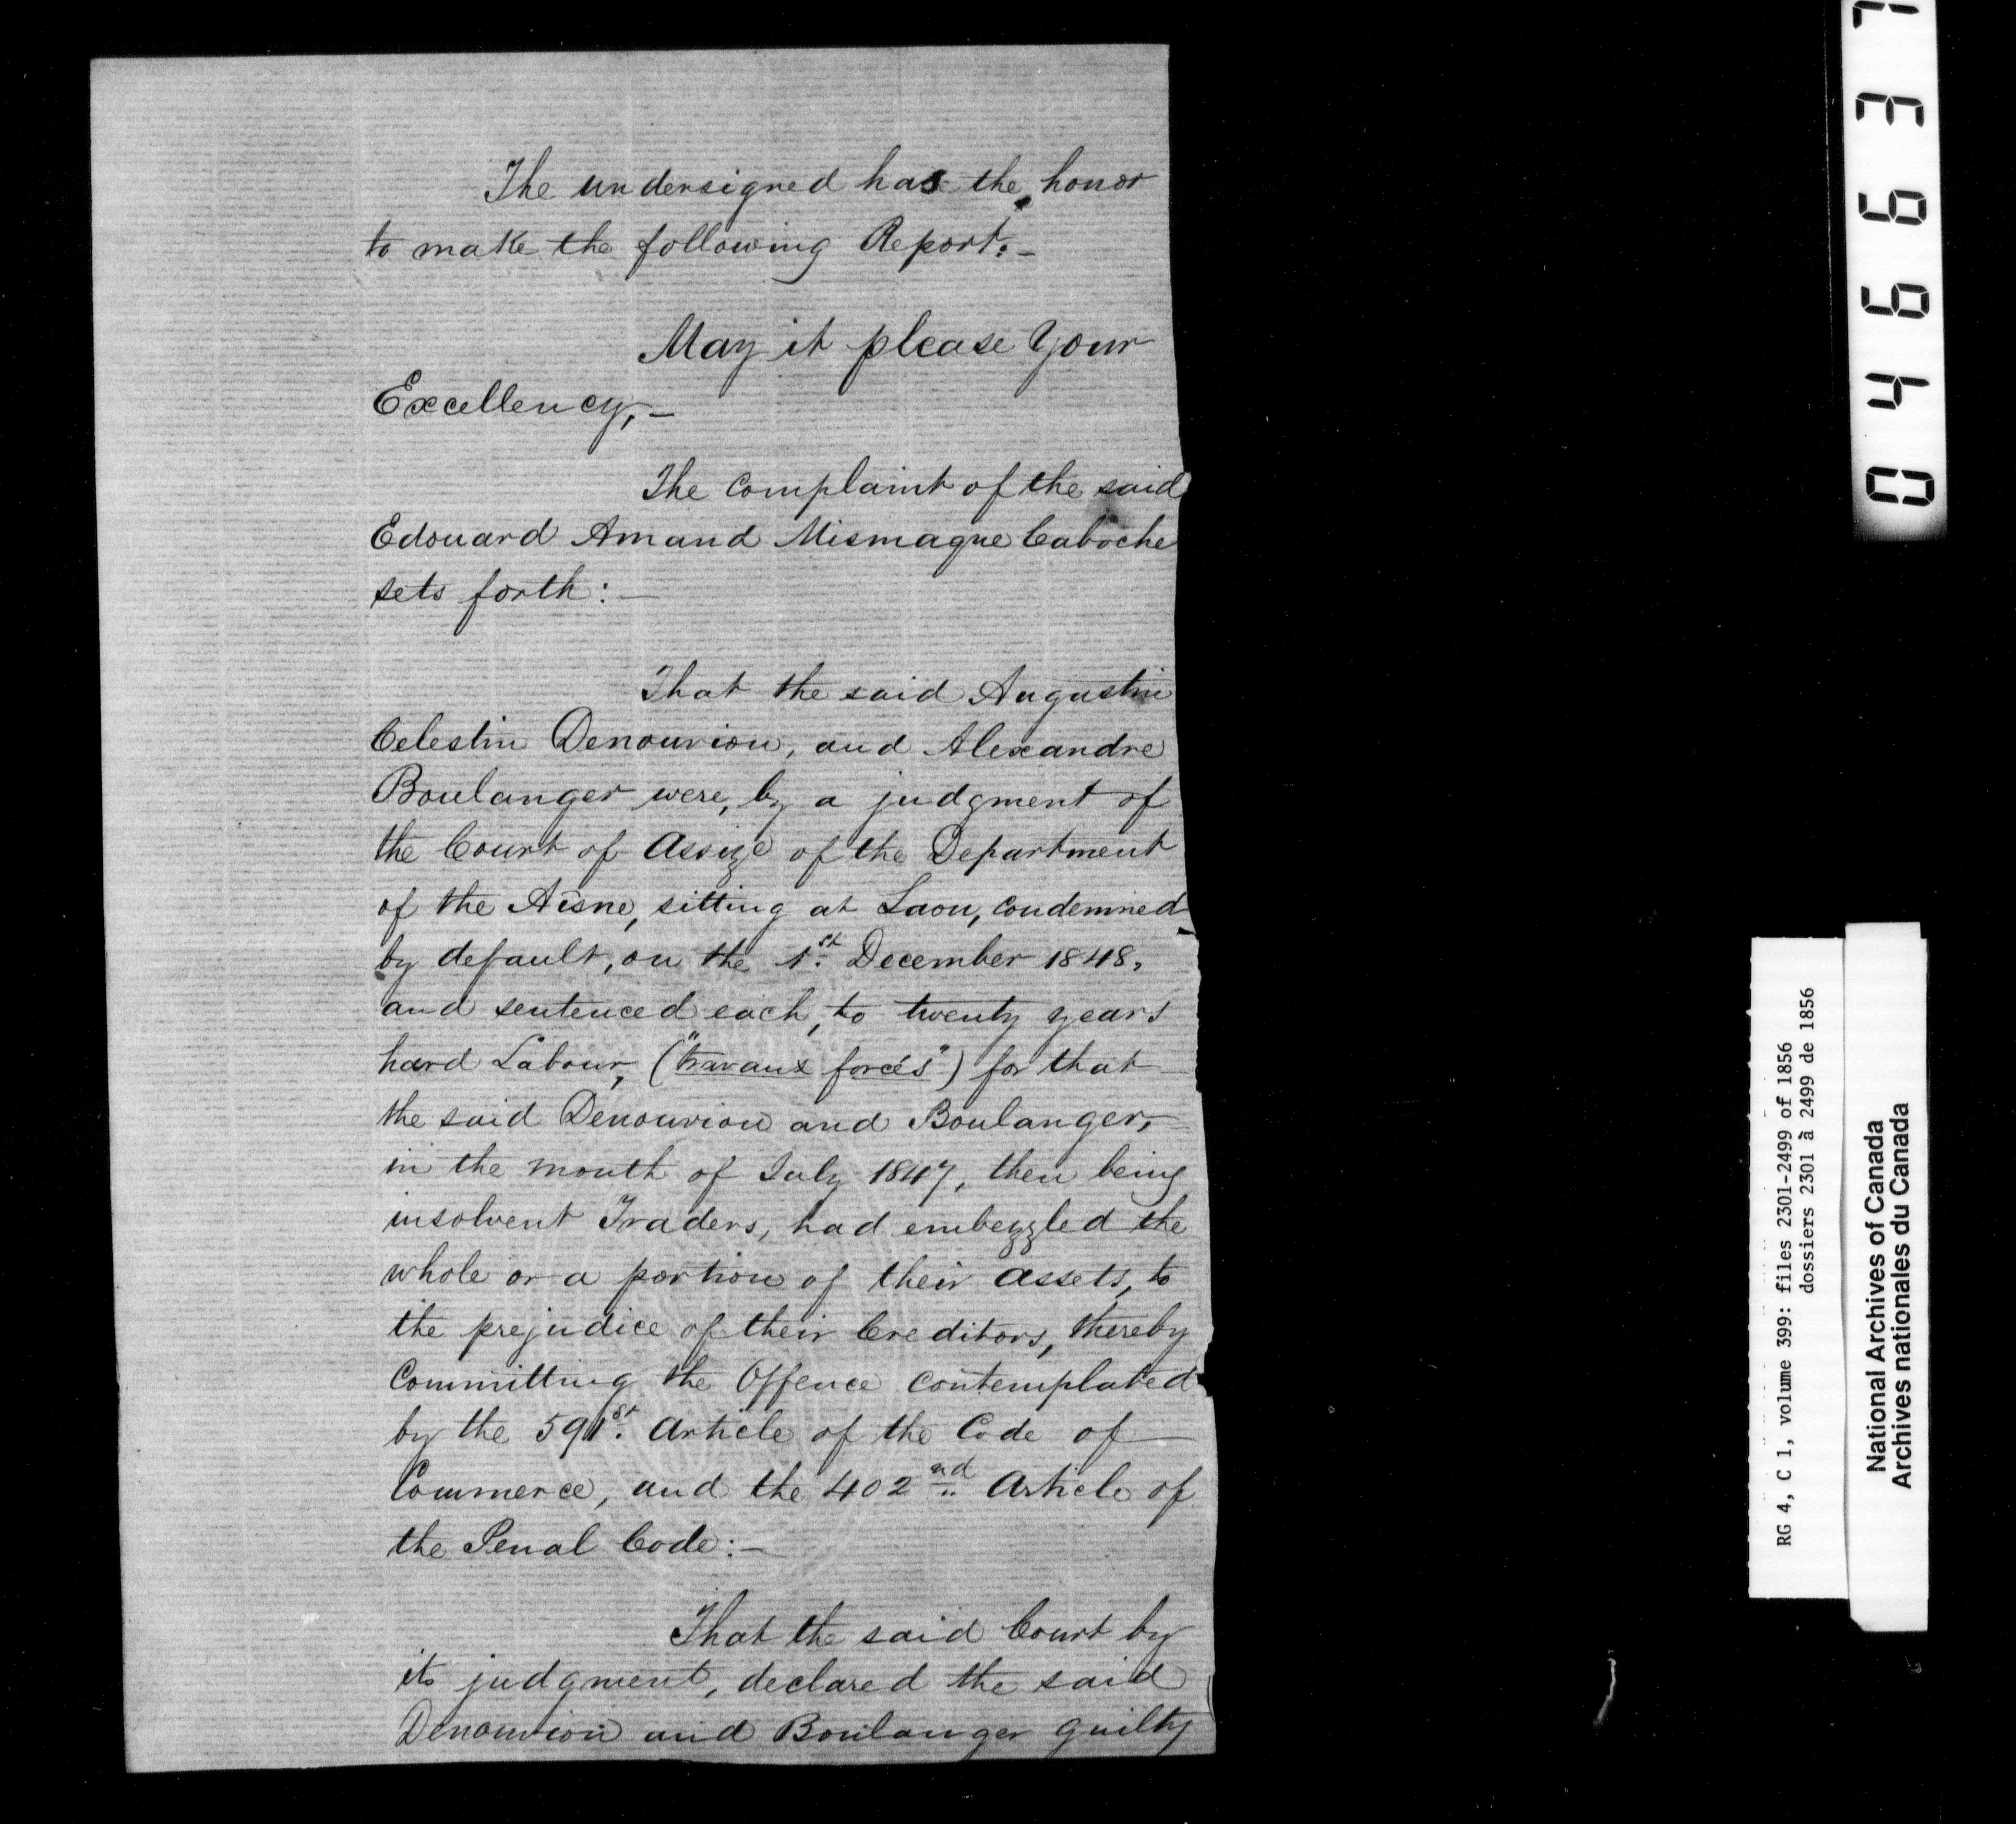 The undersigned has the honor
to make the following Report:—
May it please Your
Excellency,—
The Complaint of the said
Edouard Amand Mismaque Caboche
sets forth:—
That the said Augustin
Celestin Denouvion, and Alexandre
Boulanger were, by a judgment of
the Court of Assize of the Department
of the Aisne, sitting at Laon, condemned
by default, on the 1st. December 1848,
and sentenced each, to twenty years
hard Labour, ("travaux forcés") for that
the said Denouvion and Boulanger,
in the month of July 1847, then being
insolvent Traders, had embezzled the
whole or a portion of their assets, to
the prejudice of their Creditors, thereby
Committing the Offence contemplated
by the 591st. Article of the Code of
Commerce, and the 402nd. Article of
the Penal Code:—
That the said Court by
its judgment, declared the said
Denouvion and Boulanger guilty
04663
RG 4, C 1, volume 399: files 2301-2499 of 1856
dossiers 2301 à 2499 de 1856
National Archives of Canada
Archives nationales du Canada